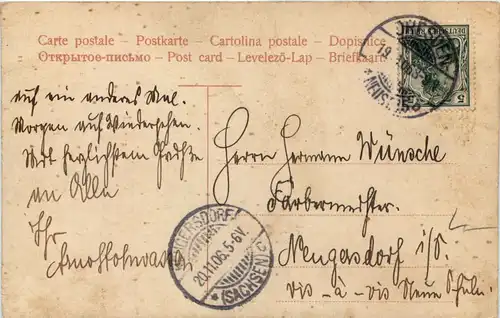 Carte postale - Postkarte - Cartolina postale - Dopisnice
Открытое-письмо - Post card - Levelező-Lap - Briefkaart
auf ein anderes Mal.
Morgen auf Wiedersehen.
Mit herzlichstem
an Alle
Ihr
Herrn Hermann Wünsche
Färbermeister.
Neugersdorf i/S.
vis-à-vis Neue Schule.
20.11.06.5-6V.
(SACHSEN)